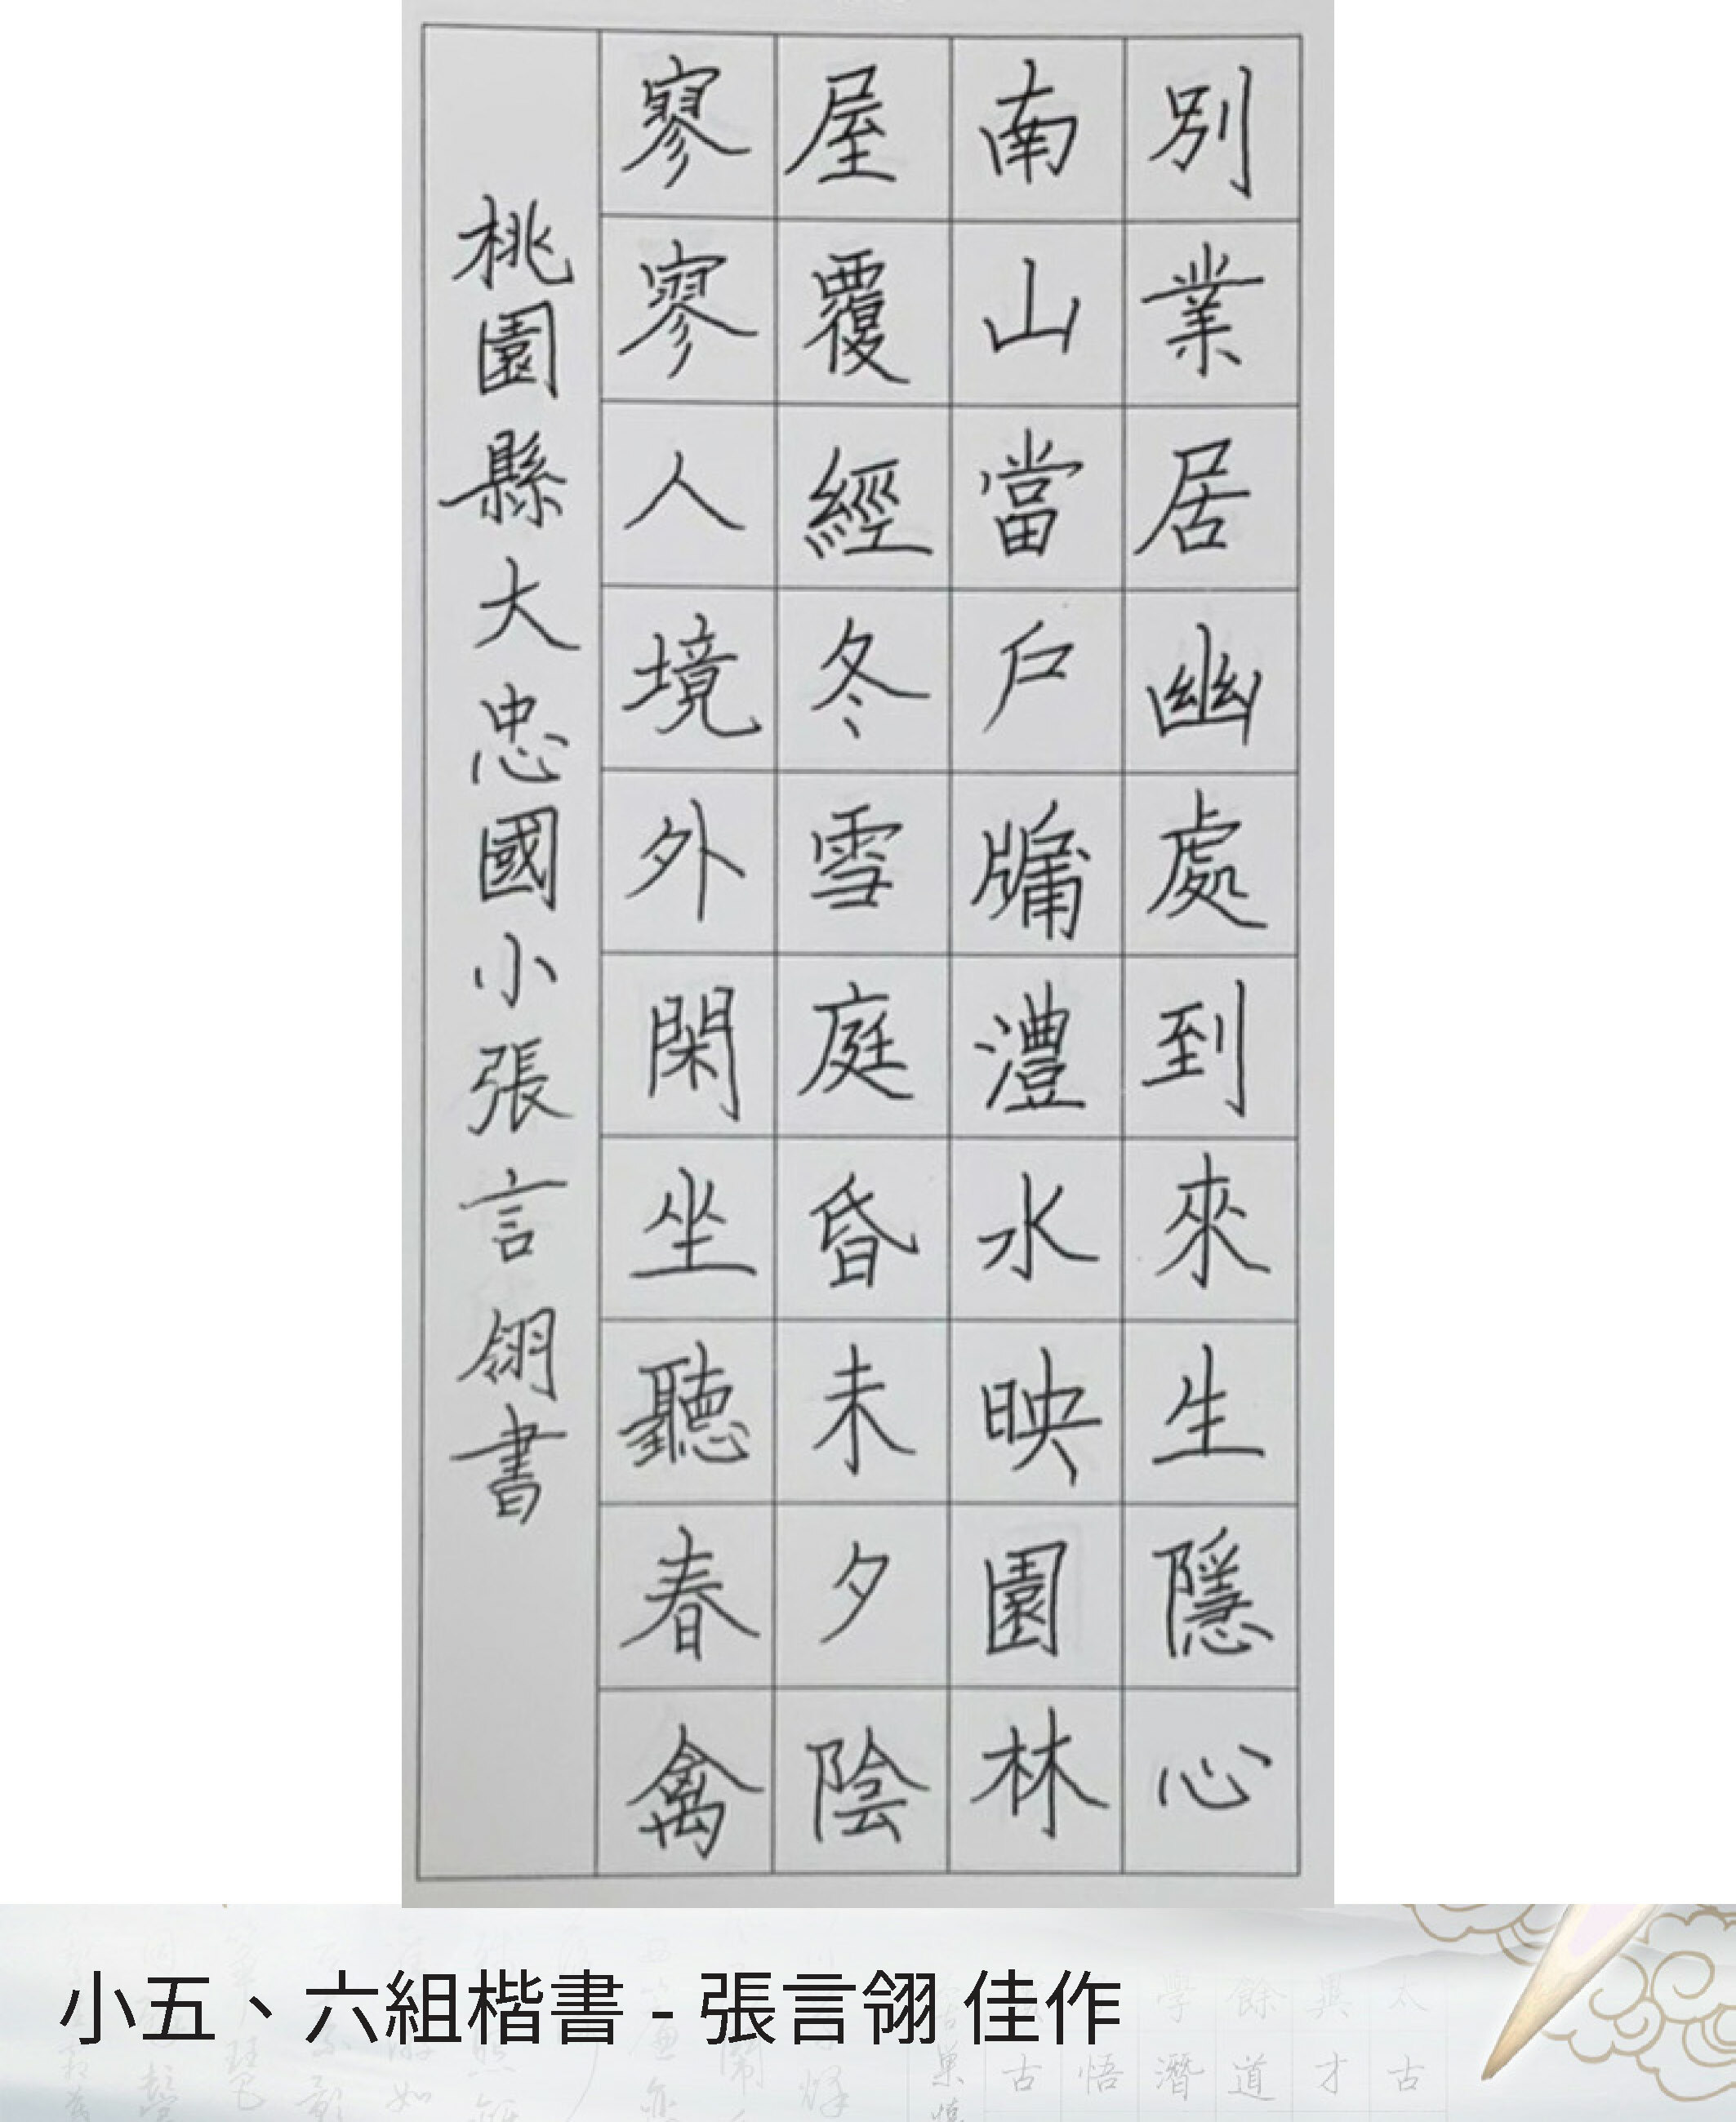 別業居幽處到來生隱心
南山當戶牖澧水映園林
屋覆經冬雪庭昏未夕陰
寥寥人境外閑坐聽春禽
桃園縣大忠國小張言翎書
小五、六組楷書 - 張言翎 佳作